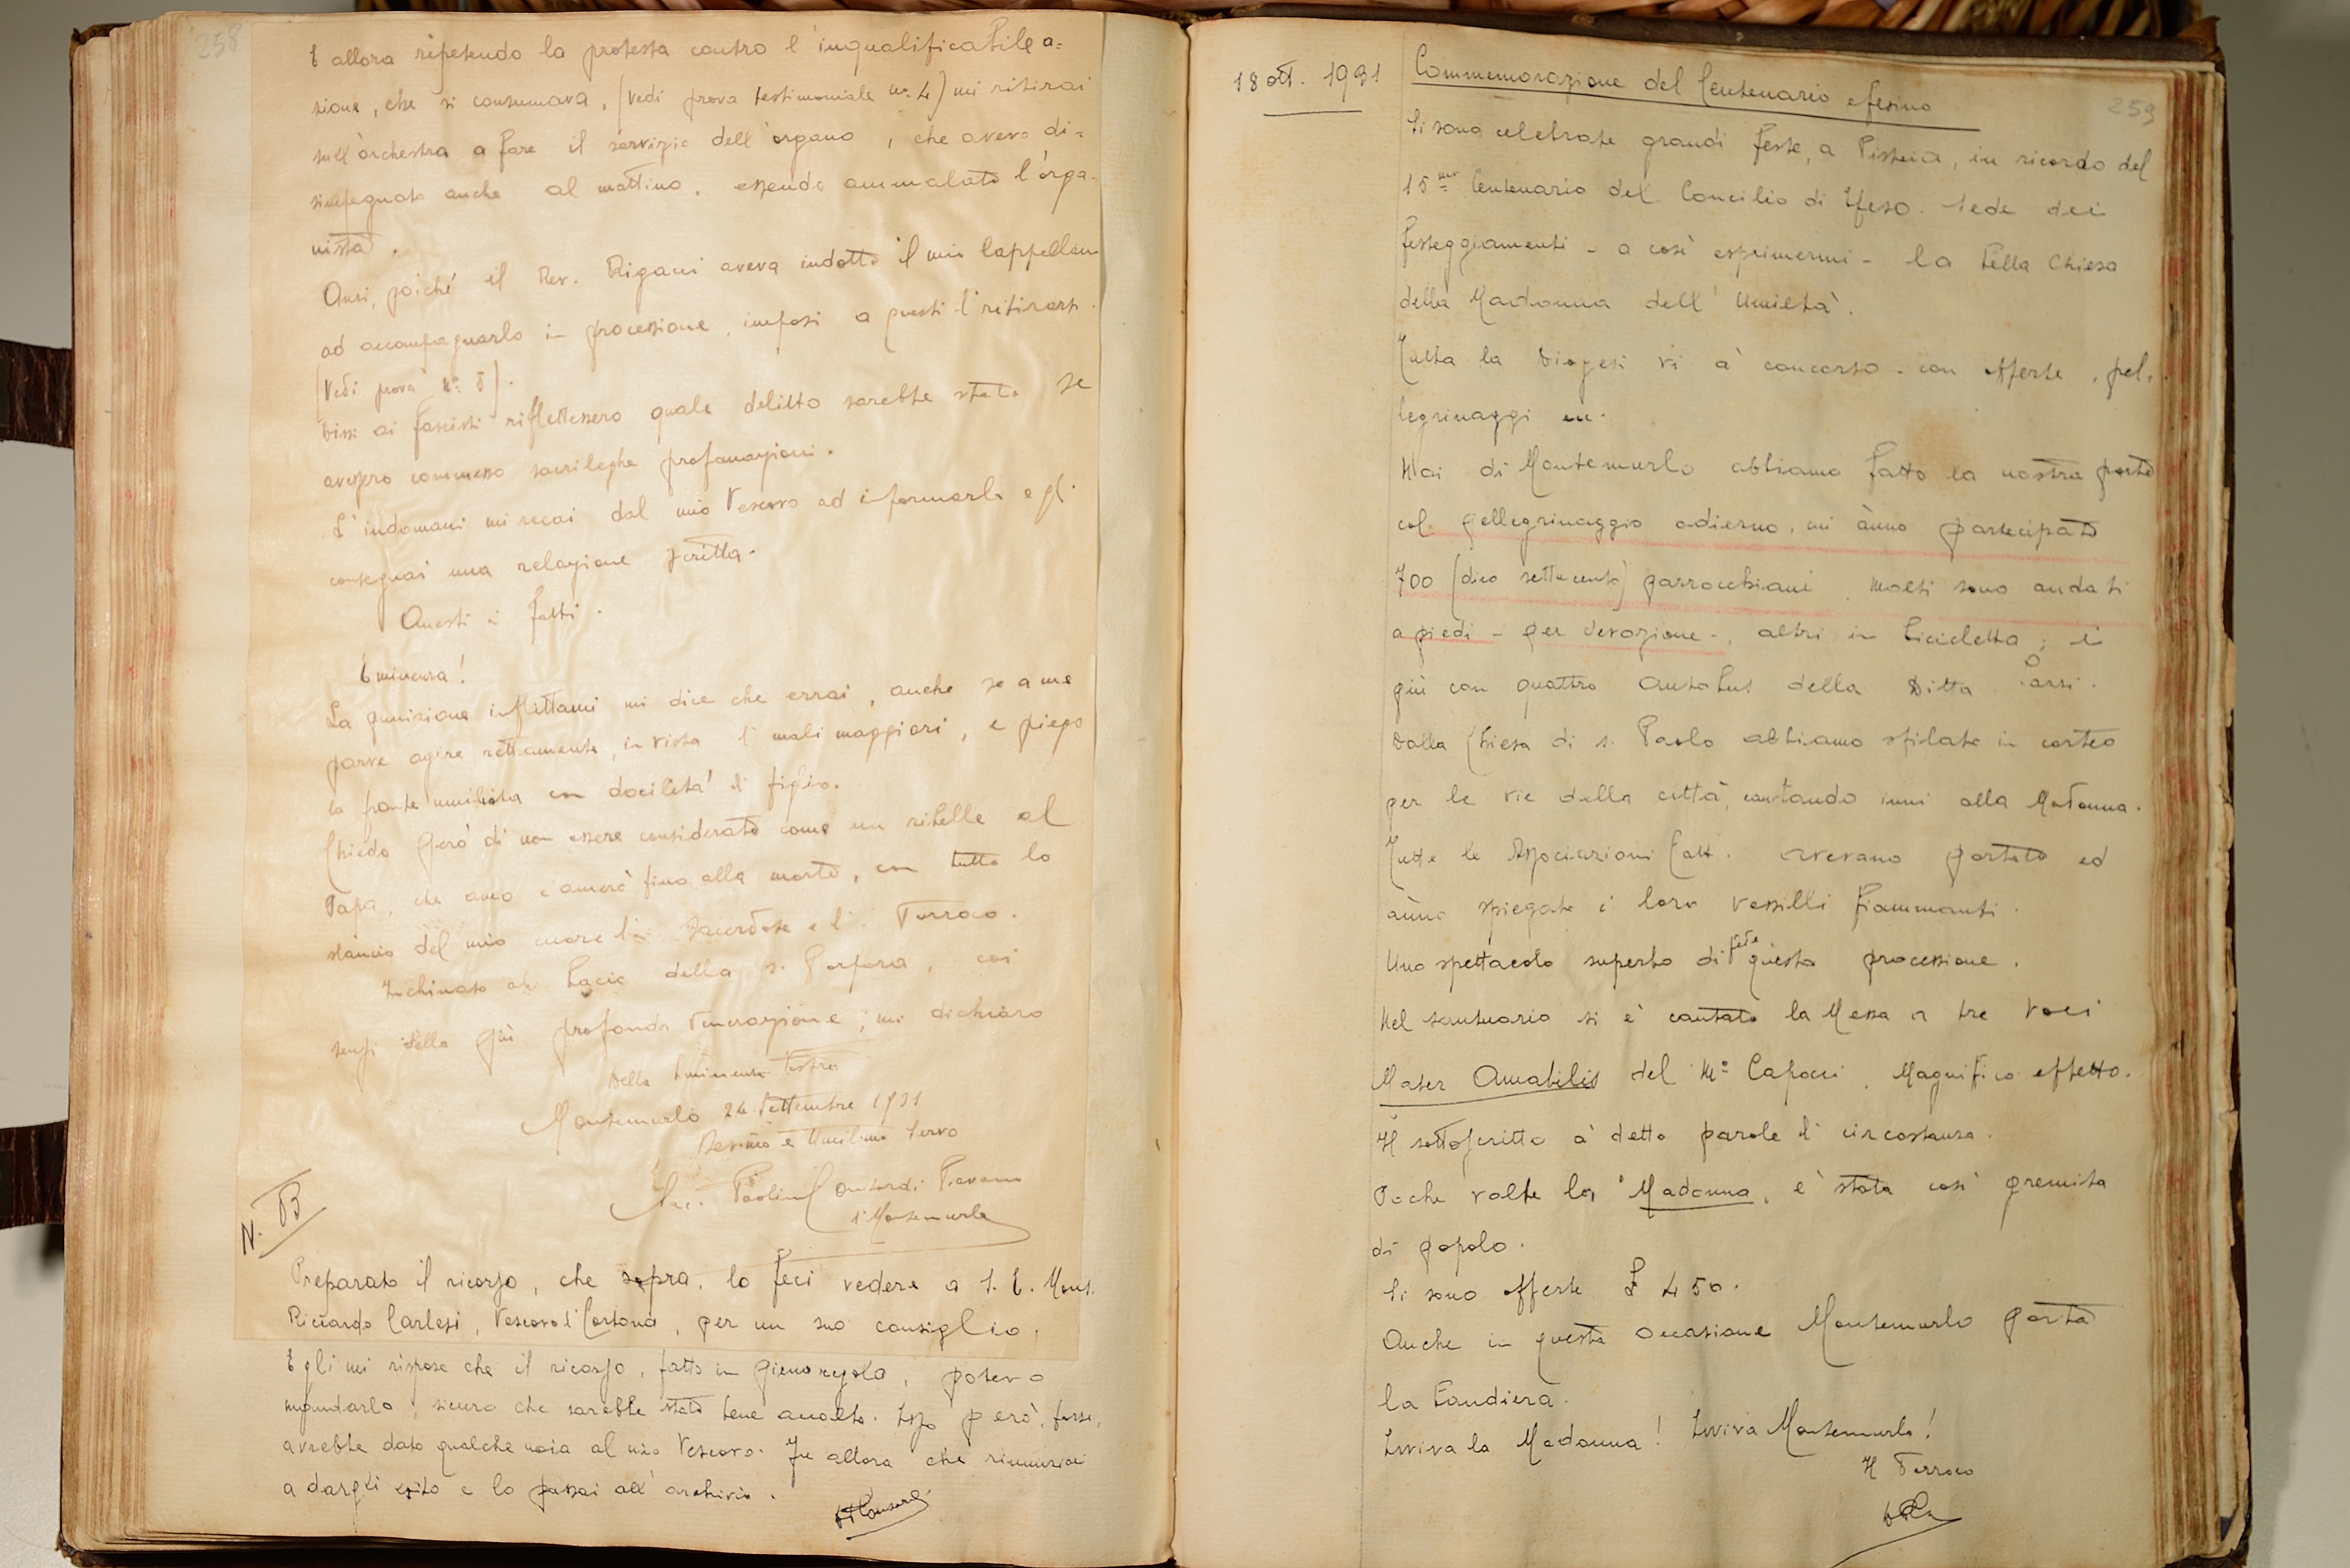 258
E allora ripetendo la protesta contro l'inqualificabile a=
zione, che si consumava, (vedi prova testimoniale n.º 4) mi ritirai
sull'orchestra a fare il servizio dell'organo, che avevo di=
simpegnato anche al mattino, essendo ammalato l'orga-
nista.
Anzi, poiché il Rev. Rigacci aveva indotto il mio Cappellano
ad accompagnarlo in processione, imposi a questi di ritirarsi.
(Vedi prova N.º 5).
Dissi ai fascisti riflettessero quale delitto sarebbe stato se
avessero commesso sacrileghe profanazioni.
L'indomani mi recai dal mio Vescovo ad informarlo e gli
consegnai una relazione scritta.
Questi i fatti.
Eminenza!
La punizione inflittami mi dice che errai, anche se a me
parve agire rettamente, in vista di mali maggiori, e piego
la fronte umiliata con docilità di figlio.
Chiedo però di non essere considerato come un ribelle al
Papa, che amo e amerò fino alla morte, con tutto lo
slancio del mio cuore di Sacerdote e di Parroco.
Inchinato al bacio della s. Porpora, coi
sensi della più profonda venerazione, mi dichiaro
Della Eminenza Vostra
Montemurlo 24 Settembre 1931
Dev.mo e Umil.mo Servo
Sac. Paolino Contardi Pievano
di Montemurlo
N. B
Preparato il ricorso, che sopra, lo feci vedere a S. E. Mons.
Riccardo Carlesi, Vescovo di Cortona, per un suo consiglio.
Egli mi rispose che il ricorso, fatto in piena regola, potevo
mandarlo, sicuro che sarebbe stato bene accolto. Esso però, forse,
avrebbe dato qualche noia al mio Vescovo. Fu allora che rinunziai
a dargli esito e lo passai all'archivio.
18 ott. 1931
Commemorazione del Centenario efesino
259
Si sono celebrate grandi feste, a Pistoia, in ricordo del
15mo Centenario del Concilio di Efeso. Sede dei
festeggiamenti - a così esprimermi - la bella Chiesa
della Madonna dell'Umiltà.
Tutta la Diogesi vi à concorso - con offerte, pel-
legrinaggi ecc.
Noi di Montemurlo abbiamo fatto la nostra parte
col pellegrinaggio odierno, mi ànno partecipato
700 (dico settecento) parrocchiani. Molti sono andati
a piedi - per devozione -, altri in bicicletta, i
più con quattro autobus della Ditta
Dalla Chiesa di s. Paolo abbiamo sfilato in corteo
per le vie della città, cantando inni alla Madonna.
Tutte le Associazioni Catt. avevano portato ed
ànno spiegato i loro vessilli fiammanti.
Uno spettacolo superbo di fede questa processione.
Nel santuario si è cantato la Messa a tre voci
Mater Amabilis del Mº Capocci. Magnifico effetto.
Il sottoscritto à detto parole di circostanza.
Poche volte la "Madonna, è stata così gremita
di popolo.
Si sono offerte £ 450.
Anche in questa occasione Montemurlo portò
la bandiera.
Evviva la Madonna! Evviva Montemurlo!
Il Parroco